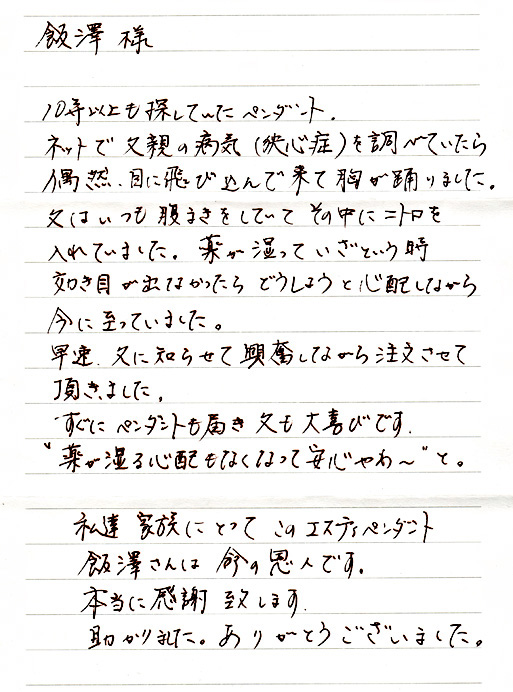 飯澤 様
10年以上も探していたペンダント.
ネットで父親の病気(狭心症)を調べていたら
偶然、目に飛び込んで来て胸が踊りました。
父はいつも腹まきをしていてその中にニトロを
入れていました。薬が湿っていざという時
効き目が出なかったらどうしようと心配しながら
今に至っていました。
早速、父に知らせて興奮しながら注文させて
頂きました.
すぐにペンダントも届き父も大喜びです.
"薬が湿る心配もなくなって安心やわ〜"と。
私達家族にとってこのエスティペンダント
飯澤さんは命の恩人です。
本当に感謝致します.
助かりました。ありがとうございました。